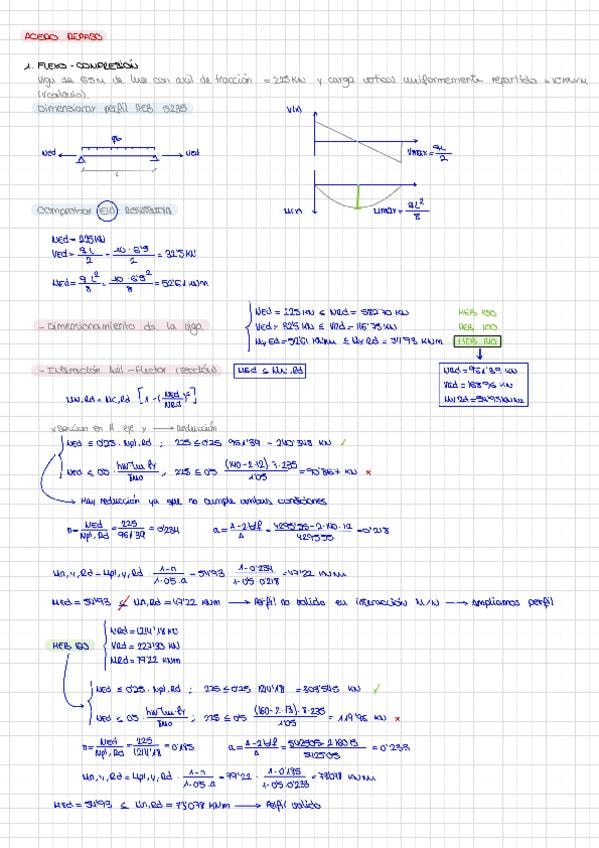 ACERO REPASO
1. FLEXO-COMPRESIÓN
Viga de 6'5m de luz con axil de tracción = 225KN y carga vertical uniformemente repartida = 10KN/m
(V cálculo).
Dimensionar perfil HEB S235
V(x)
qb
Ned Ned
L
Vmax = qL/2
M(x) Mmax = qL²/8
Comprobar E.L.U. Resistencia
Ned = 225KN
Ved = qL/2 = 10·6'5/2 = 32'5 KN
Med = qL²/8 = 10·6'5²/8 = 52'61 KNm
- Dimensionamiento de la viga
Ned = 225 KN ≤ NRd = 582'70 KN HEB 100
≤ VRd = 116'75 KN HEB 100
≤ My,Rd = 54'93 KNm HEB 140
NRd = 961'39 KN
VRd = 168'96 KN
My,Rd = 54'93 KNm
- Interacción Axil-Flector (sección) Med ≤ Mn,Rd
→ reducción
Ned ≤ 0'25·Npl,Rd ; 225 ≤ 0'25·961'39 = 240'348 KN ✓
Ned ≤ 0'5·hw·tw·fy/γM0 ; 225 ≤ 0'5 (140-2·12)·7·235/1'05 = 90'867 KN ×
→ Hay reducción ya que no cumple ambas condiciones
n = Ned/Npl,Rd = 225/961'39 = 0'234 a = = 0'218
Mn,y,Rd = Mpl,y,Rd · 1-n/1-0'5·a = 54'93 · 1-0'234/1-0'5·0'218 = 47'22 KNm
Med = 54'93 ≰ Mn,Rd = 47'22 KNm → Perfil no valido en interacción M/N → ampliamos perfil
HEB 160
NRd = 1214'18 KN
VRd = 227'33 KN
MRd = 79'22 KNm
Ned ≤ 0'25·Npl,Rd ; 225 ≤ 0'25·1214'18 = 303'545 KN ✓
Ned ≤ 0'5·hw·tw·fy/γM0 ; 225 ≤ 0'5 (160-2·13)·8·235/1'05 = 119'96 KN ×
n = Ned/Npl,Rd = 225/1214'18 = 0'185 a = = 0'233
Mn,y,Rd = Mpl,y,Rd · 1-n/1-0'5·a = 79'22 · 1-0'185/1-0'5·0'233 = 73'078 KNm
Med = 54'93 ≤ Mn,Rd = 73'078 KNm → Perfil valido